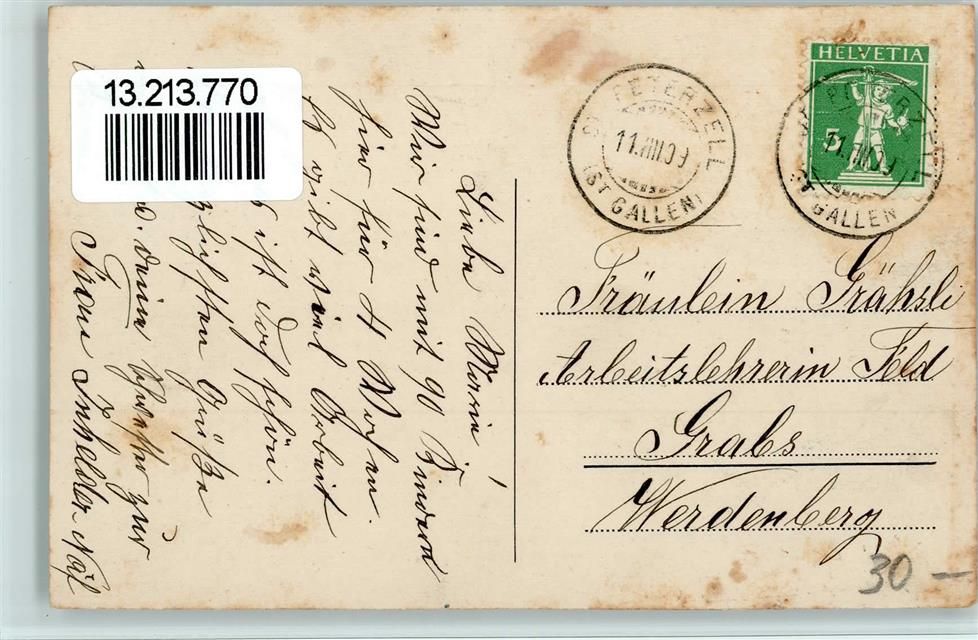 13.213.770
HELVETIA
5
ST. PETERZELL
11.VIII.09
(ST GALLEN)
ST. PETERZELL
11.VIII.09
(ST GALLEN)
Fräulein Grähsli
Arbeitslehrerin Feld
Grabs
Werdenberg
30 —
Liebe Marie!
Wir sind mit 90 Kindern
hier für 4 Wochen.
Es gibt viel Arbeit
ist doch schön.
Grüße
deine Schwester
Frau Inhelder Näf